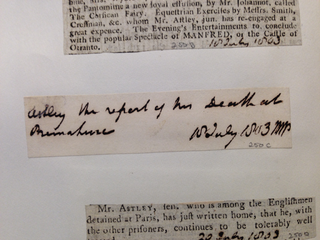 the Pantomime a new loyal effusion, by Mr. Johannot, called
The Corsican Fairy. Equestrian Exercises by Messrs. Smith,
Crossman, &c. whom Mr. Astley, jun. has re-engaged at a
great expence. The Evening's Entertainments to conclude
with the popular Spectacle of MANFRED, or the Castle of
Otranto. 250B 18 July 1803
Astley the report of his Death at
18 July 1803
250 C
Mr. ASTLEY, sen. who is among the Englishmen
detained at Paris, has just written home, that he, with
the other prisoners, continues to be tolerably well
July 1803 250D